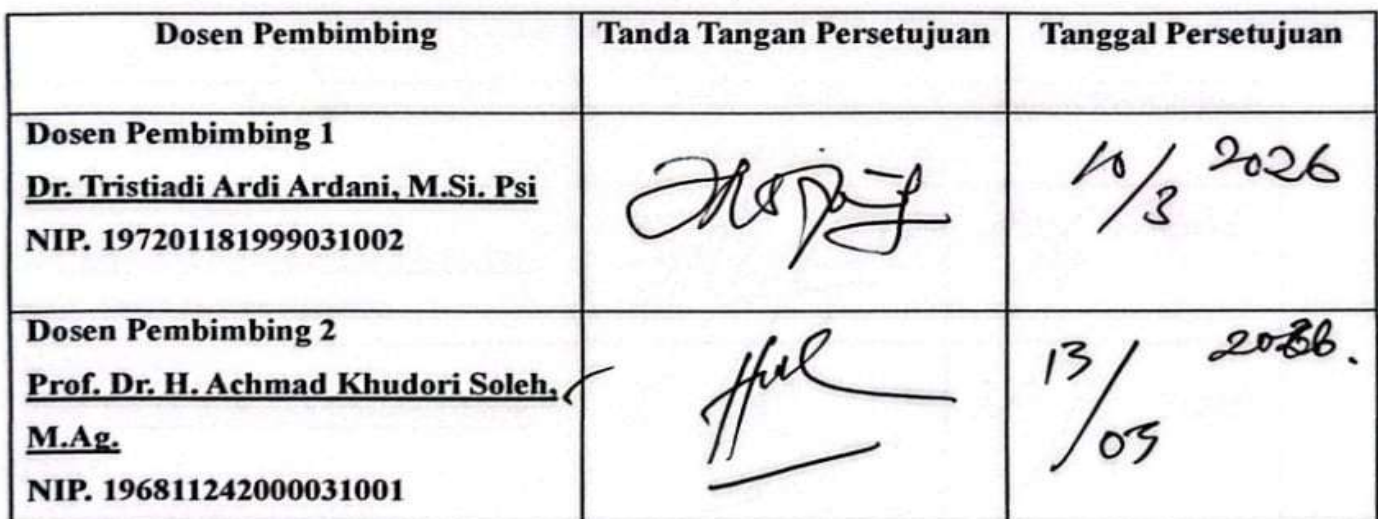 Dosen Pembimbing
Tanda Tangan Persetujuan
Tanggal Persetujuan
Dosen Pembimbing 1
Dr. Tristiadi Ardi Ardani, M.Si. Psi
NIP. 197201181999031002
10/3 2026
Dosen Pembimbing 2
Prof. Dr. H. Achmad Khudori Soleh,
M.Ag.
NIP. 196811242000031001
13/03